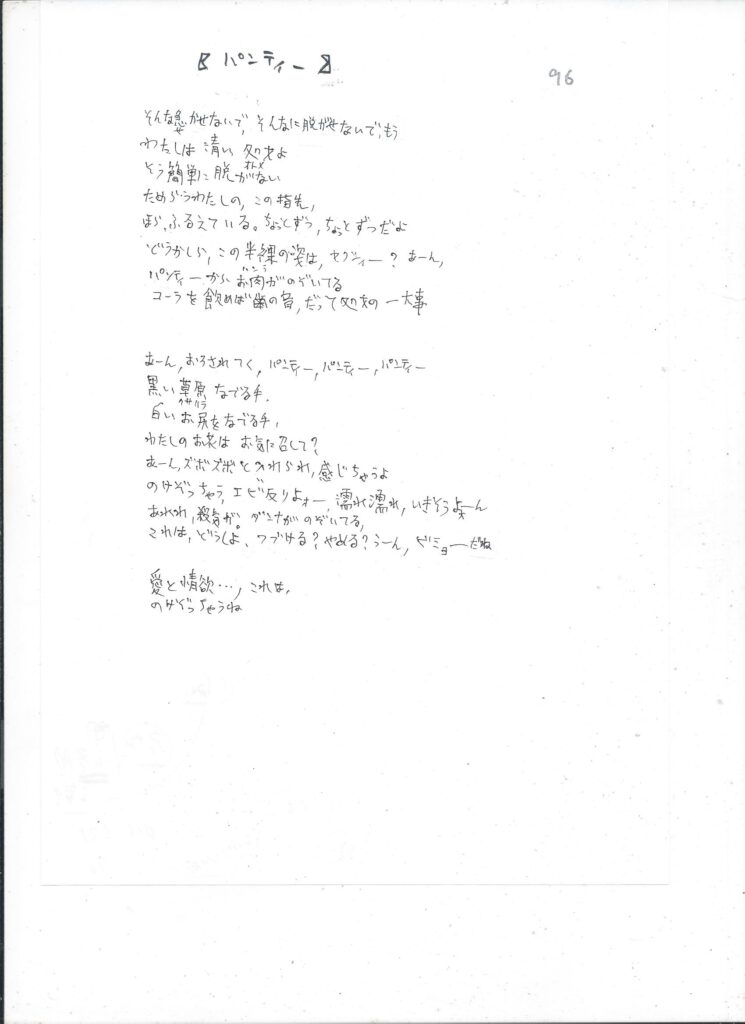 〖 パンティー 〗
96
そんな急かせないで, そんなに脱がせないで, もう
わたしは 清い 処女よ
そう簡単に脱がない
ためらうわたしの, この指先,
ほら, ふるえている。ちょっとずつ, ちょっとずつだよ
どうかしら, この半裸の姿は, セクシィー? あーん,
パンティーからお肉がのぞいてる
コーラを飲めば歯の音, だって処女の一大事
あーん, おろされてく, パンティー, パンティー, パンティー
黒い草原 なでる手,
クサハラ
白いお尻をなでる手,
わたしのお花は お気に召して?
あーん, ズボズボと入れられ, 感じちゃうよ
のけぞっちゃう, エビ反りよォー, 濡れ濡れ, いきそうよォーん
あれれ, 殺気が。 がのぞいてる,
これは, どうしよ、つづける? やめる? うーん, ビミョーだね
愛と情欲…, これは,
のけぞっちゃうね